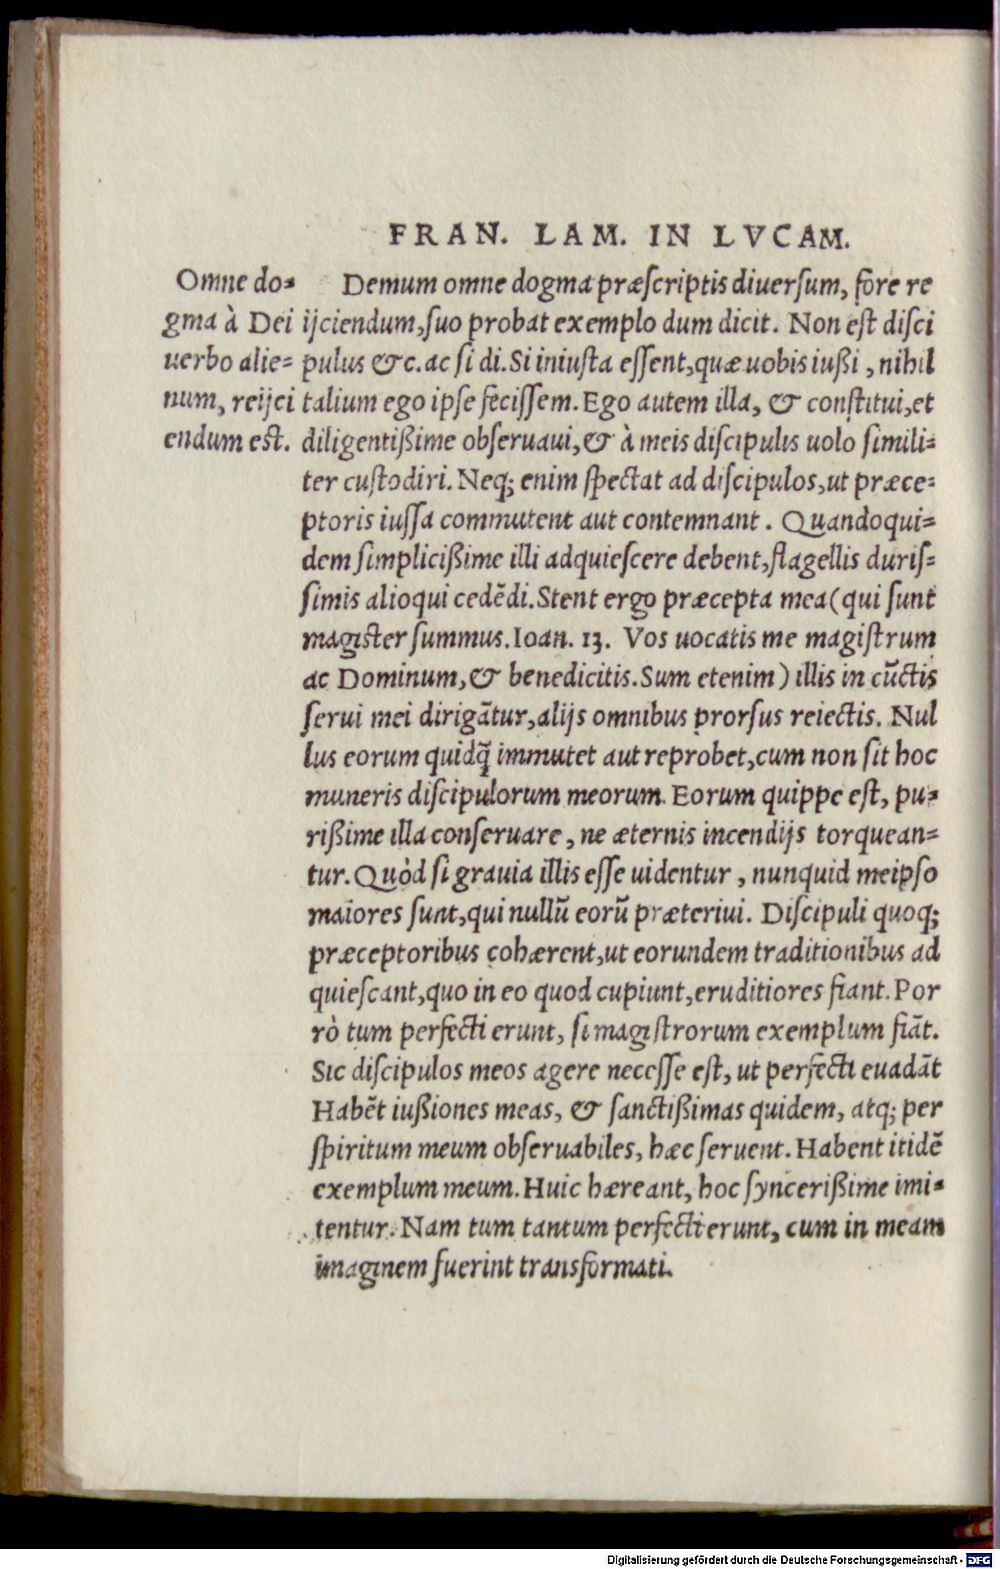 FRAN. LAM. IN LVCAM.
Omne do=
gma à Dei
uerbo alie=
num, reijci
endum est.
Demum omne dogma præſcriptis diuerſum, fore re
ijciendum,ſuo probat exemplo dum dicit. Non eſt diſci
pulus &c. ac ſi di. Si iniuſta eſſent,quæ uobis iußi , nihil
talium ego ipſe feciſſem. Ego autem illa, & conſtitui,et
diligentißime obſeruaui,& à meis diſcipulis uolo ſimili=
ter cuſtodiri. Neq; enim ſpectat ad diſcipulos,ut præce=
ptoris iuſſa commutent aut contemnant . Quandoqui=
dem ſimplicißime illi adquieſcere debent,flagellis duriſ=
ſimis alioqui cedẽdi. Stent ergo præcepta mea (qui ſunt
magiſter ſummus. Ioan. 13. Vos uocatis me magiſtrum
ac Dominum,& benedicitis. Sum etenim) illis in cũctis
ſerui mei dirigãtur,alijs omnibus prorſus reiectis. Nul
lus eorum quidq̃ immutet aut reprobet,cum non ſit hoc
muneris diſcipulorum meorum. Eorum quippe eſt, pu=
rißime illa conſeruare , ne æternis incendijs torquean=
tur. Quòd ſi grauia illis eſſe uidentur , nunquid meipſo
maiores ſunt,qui nullũ eorũ præteriui. Diſcipuli quoq;
præceptoribus cohærent,ut eorundem traditionibus ad
quieſcant,quo in eo quod cupiunt,eruditiores fiant. Por
rò tum perfecti erunt, ſi magiſtrorum exemplum fiãt.
Sic diſcipulos meos agere neceſſe eſt, ut perfecti euadãt
Habẽt iußiones meas, & ſanctißimas quidem, atq; per
ſpiritum meum obſeruabiles, hæc ſeruent. Habent itidẽ
exemplum meum. Huic hæreant, hoc ſyncerißime imi=
tentur. Nam tum tantum perfecti erunt, cum in meam
imaginem fuerint transformati.
Digitalisierung gefördert durch die Deutsche Forschungsgemeinschaft - DFG